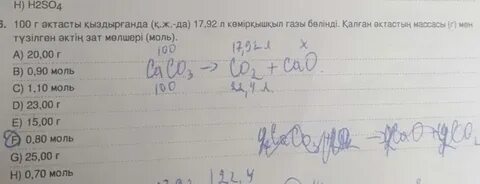 H) H2SO4
3. 100 г әктасты қыздырғанда (қ.ж.-да) 17,92 л көмірқышқыл газы бөлінді. Қалған әктастың массасы (г) мен
түзілген әктің зат мөлшері (моль).
A) 20,00 г
100 17,92 л x
B) 0,90 моль
CaCO3 → CO2 + CaO.
C) 1,10 моль
100 22,4 л
D) 23,00 г
E) 15,00 г
F) 0,80 моль
G) 25,00 г
H) 0,70 моль
22,4